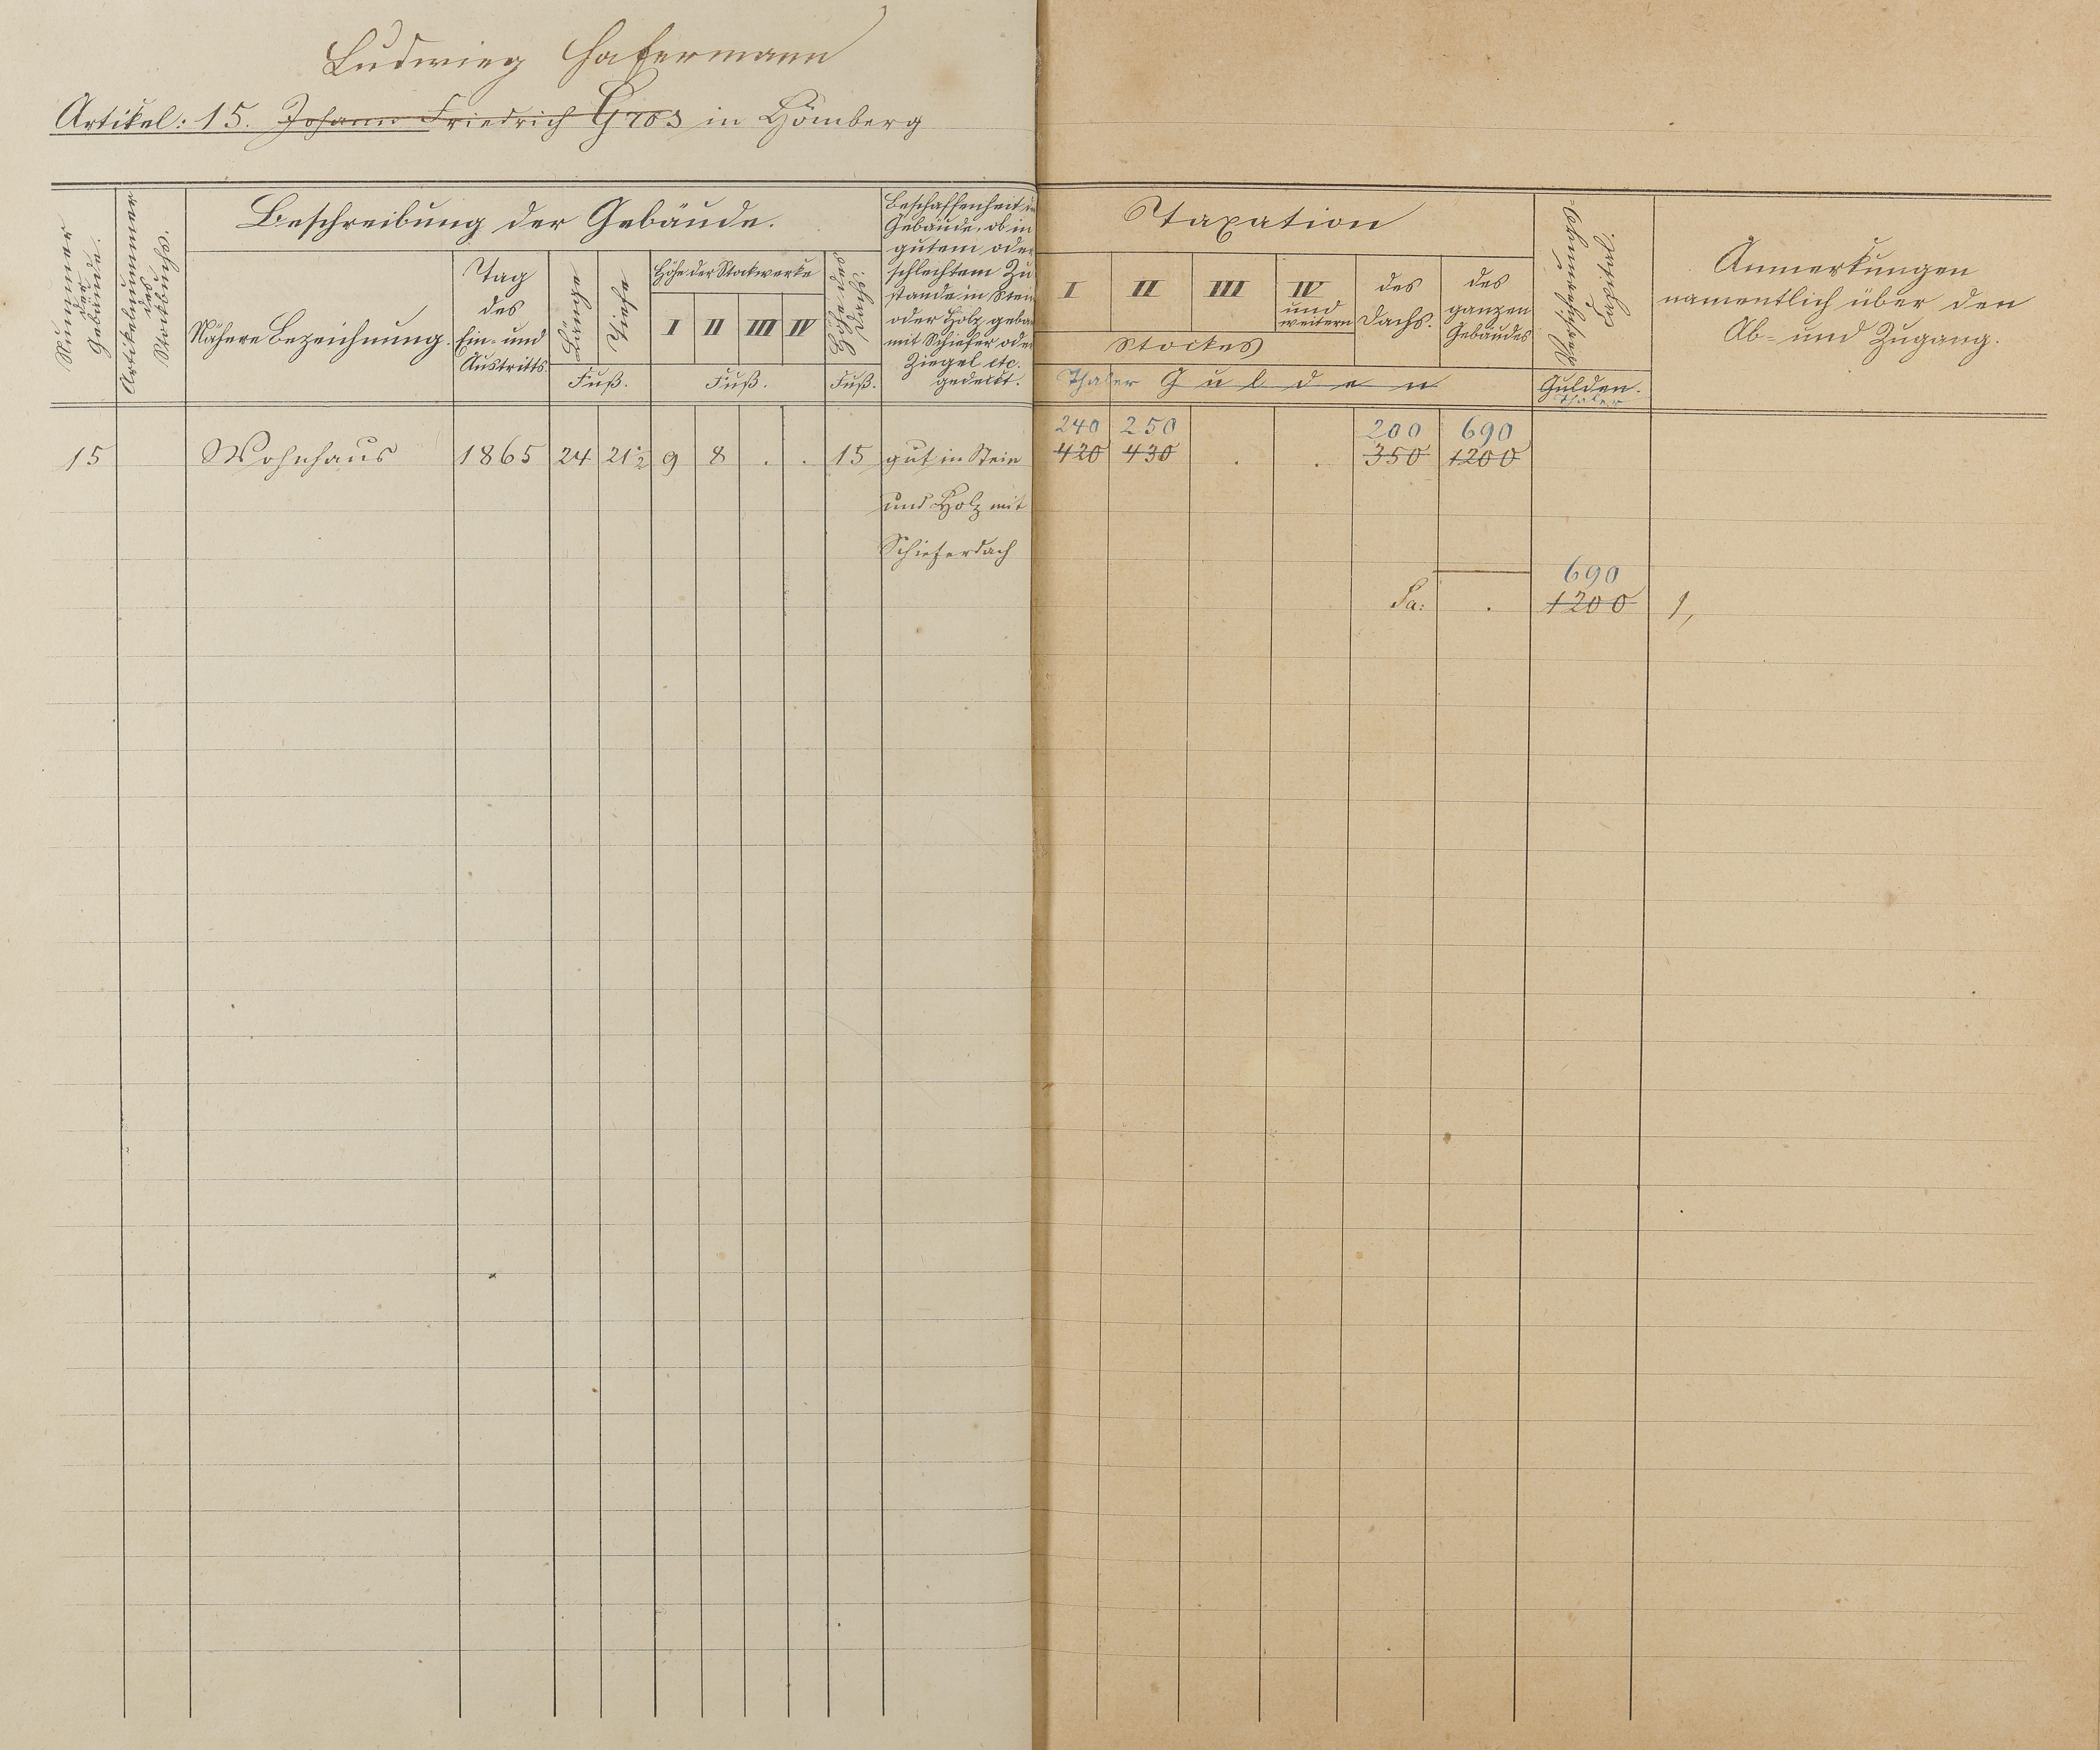 Ludwieg Hafermann
Artikel: 15. Johann Friedrich Gros in Hömberg
Nummer der Gebäude.
Artikelnummer des Stockbuchs.
Beschreibung der Gebäude.
Nähere Bezeichnung.
Tag
des
Ein- und
Austritts.
Länge
Tiefe
Fuß.
Höhe der Stockwerke
I II III IV
Fuß.
Höhe des Dachs.
Fuß.
Beschaffenheit der
Gebäude, ob in
gutem oder
schlechtem Zu
stande in Stein
oder Holz gebaut
mit Schiefer oder
Ziegel etc.
gedeckt.
Taxation
I II III IV
und
weitern
Stockes
des
Dachs.
des
ganzen
Gebäudes
Thaler Gulden
Versicherungs-
Capital.
Gulden.
Thaler
Anmerkungen
namentlich über den
Ab- und Zugang.
240 250 200 690
15 Wohnhaus 1865 24 21½ 9 8 . . 15 gut in Stein 420 430 . . 350 1200
und Holz mit
Schieferdach
690
Sa: . 1200 1,